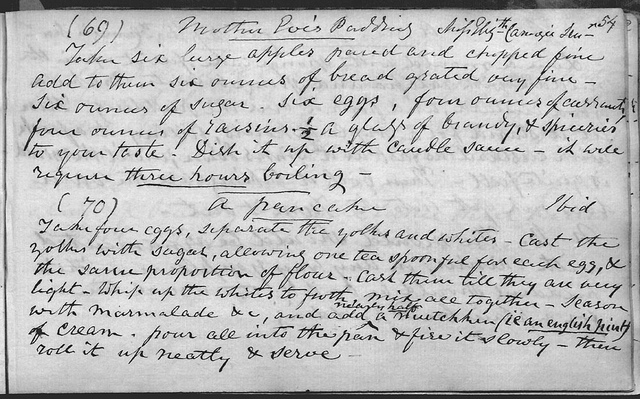 (69) Mother Eve's Pudding Miss Elizth Carnegie Sen- no 54
Take six large apples pared and chopped fine
add to them six ounces of bread grated very fine -
Six ounces of sugar. Six eggs, four ounces of currants,
four ounces of raisins. ½ a glass of brandy, & spiceries
to your taste. Dish it up with caudle sauce - it will
require three hours boiling -
(70) A pancake Ibid
Take four eggs, separate the yolks and whites - Cast the
yolks with sugar, allowing one tea spoonful for each egg, &
the same proportion of flour - Cast them till they are very
light - Whip up the whites to froth, mix all together - Season
with marmalade &c, and add a half mutchkin (ie an english pint)
of cream. pour all into the pan & fire it slowly - then
roll it up neatly & serve -